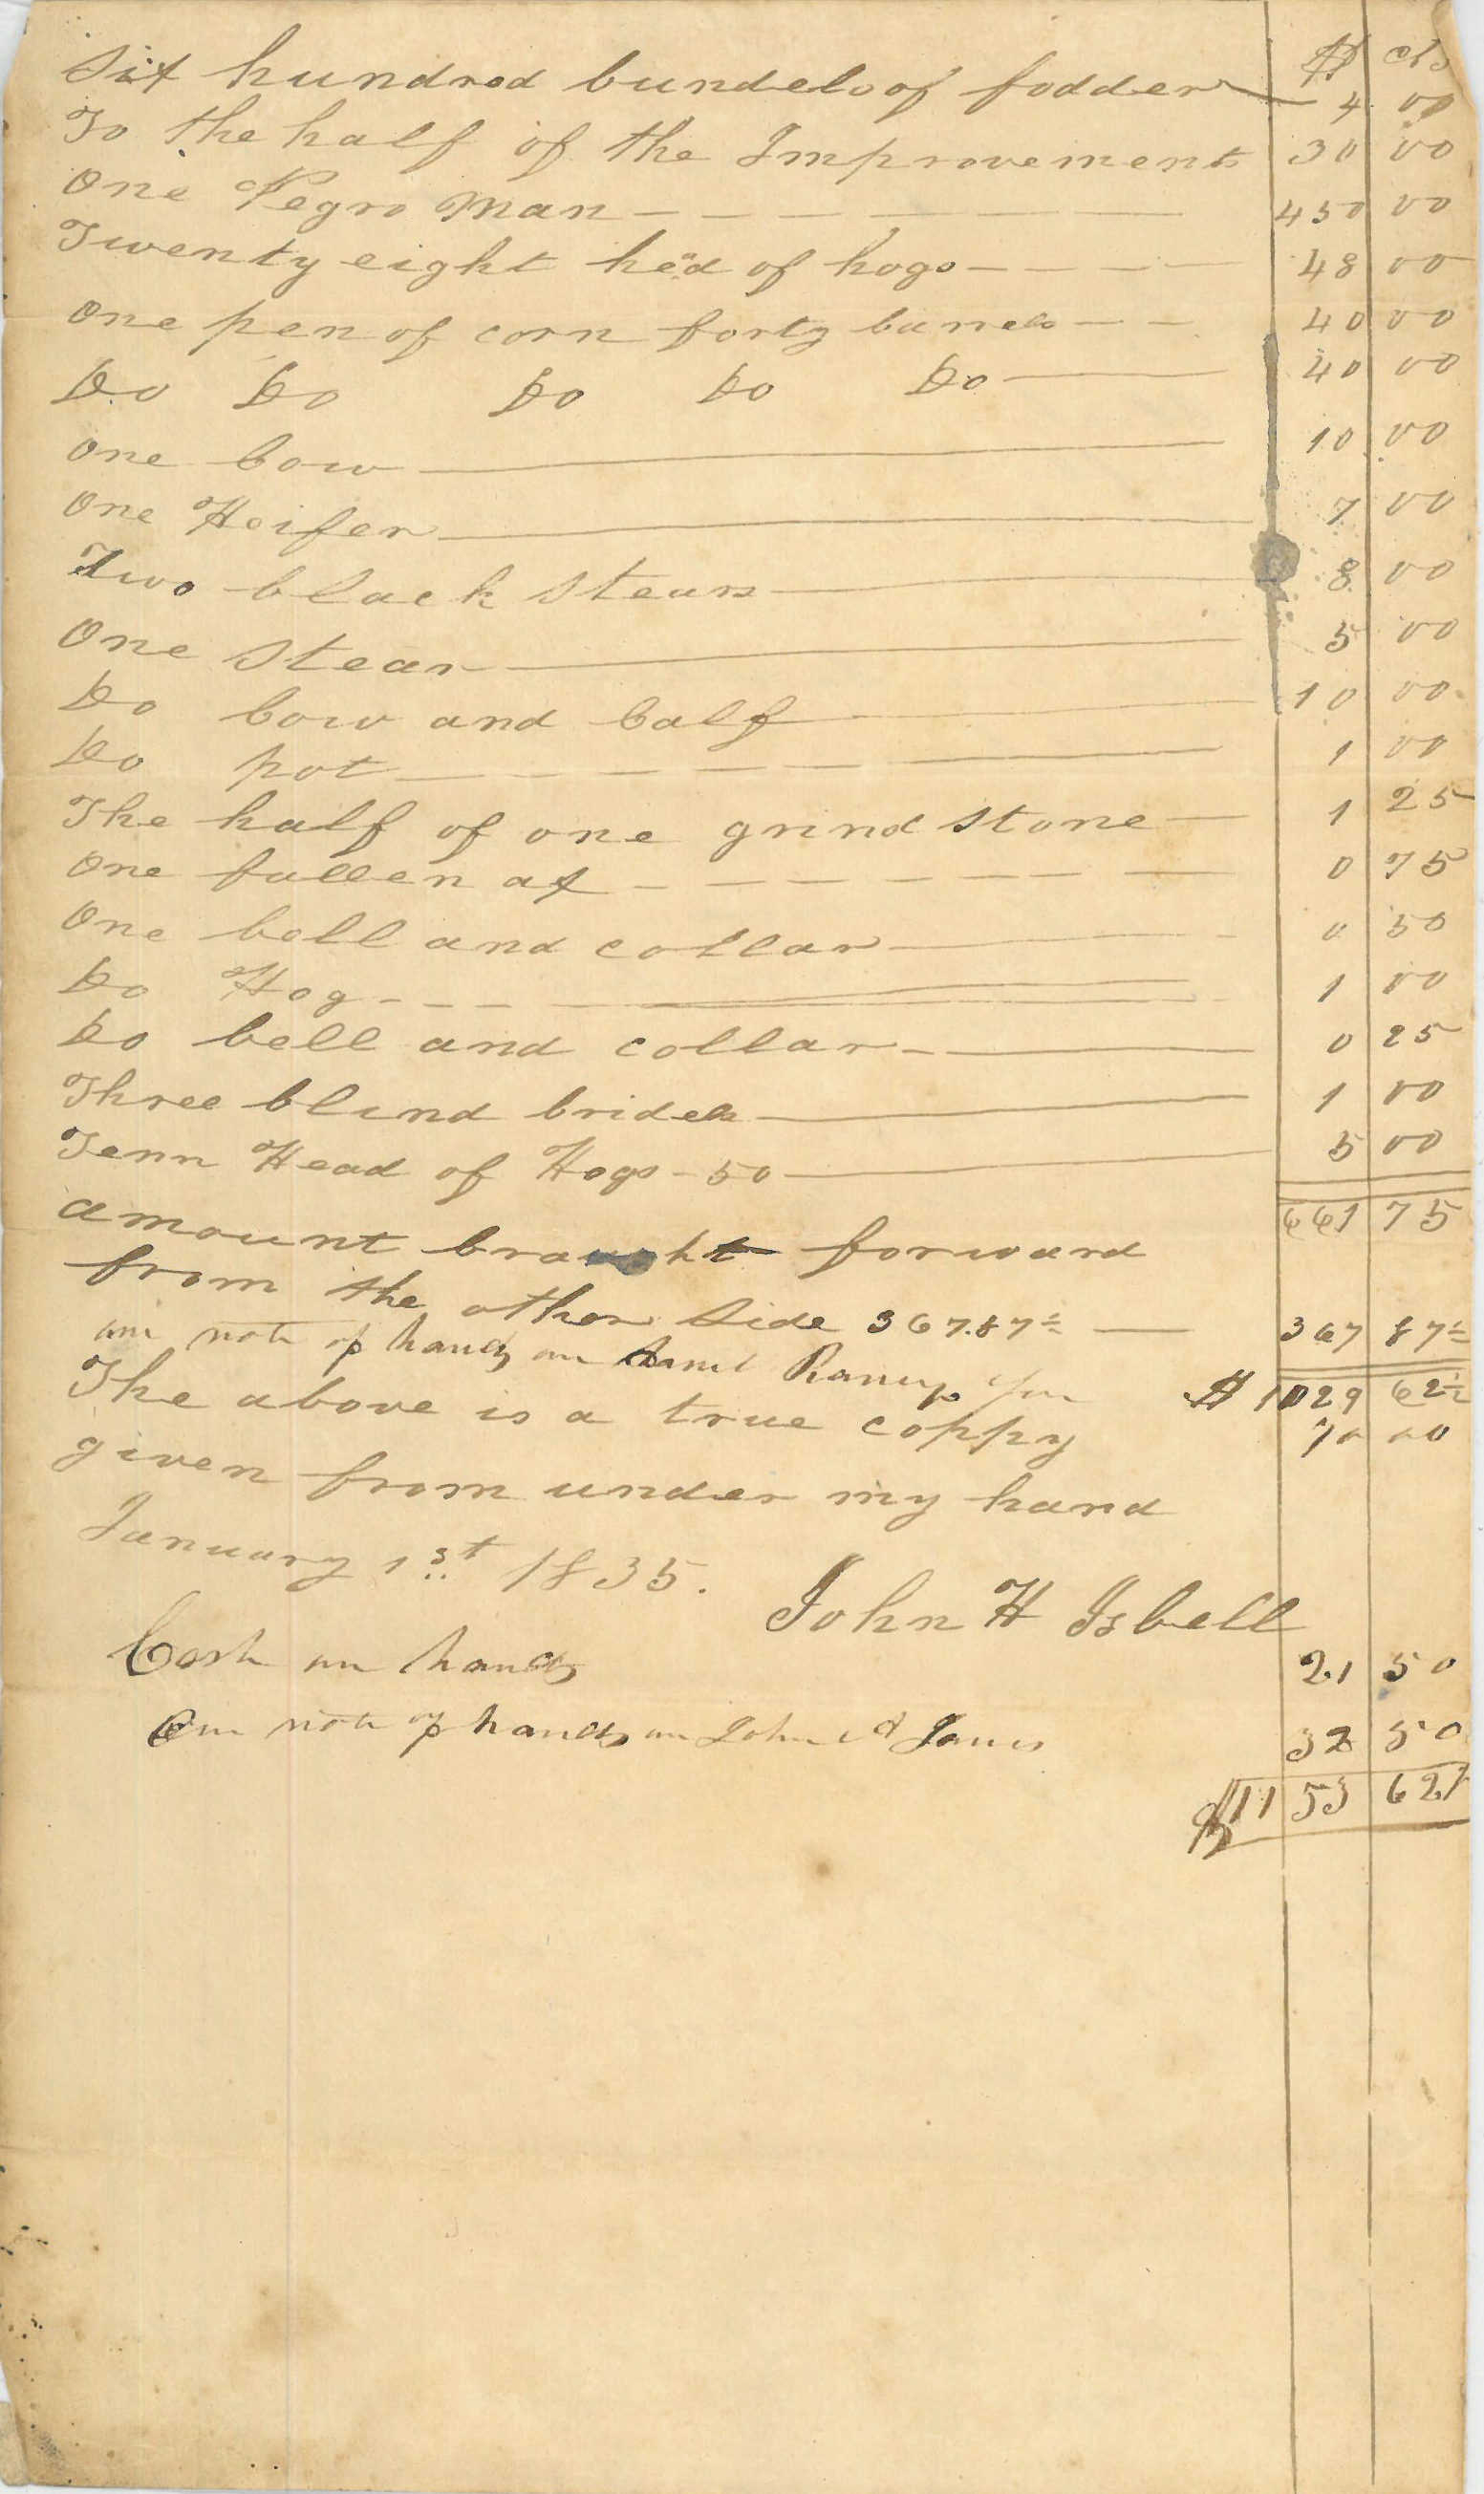 $ cts
Six hundred bundels of fodder — 4 00
To the half of the Improvements 30 00
One Negro Man — — — — — — 450 00
Twenty eight head of hogs — — — — 48 00
One pen of corn forty barrels — — 40 00
Do Do Do Do Do — 40 00
One Cow — 10 00
One Heifer — 7 00
Two black stears — 8 00
One stear — 5 00
Do Cow and Calf — 10 00
Do pot — — — — — — 1 00
The half of one grind stone — 1 25
One fallen ax — — — — — — — 0 75
One bell and collar — 0 50
Do Hog — — — — 1 00
Do bell and collar — 0 25
Three blind bridels — 1 00
Tenn Head of Hogs - 50 — 5 00
661 75
amount braught forward
from the other side 367.87½ — 367 87½
one note of hand on Ramey $ 1029 62½
70 00
The above is a true coppy
given from under my hand
January 1st 1835.
John H Isbell
Cash on hand 21 50
One note of hand on John A Jones 32 50
$1153 62½